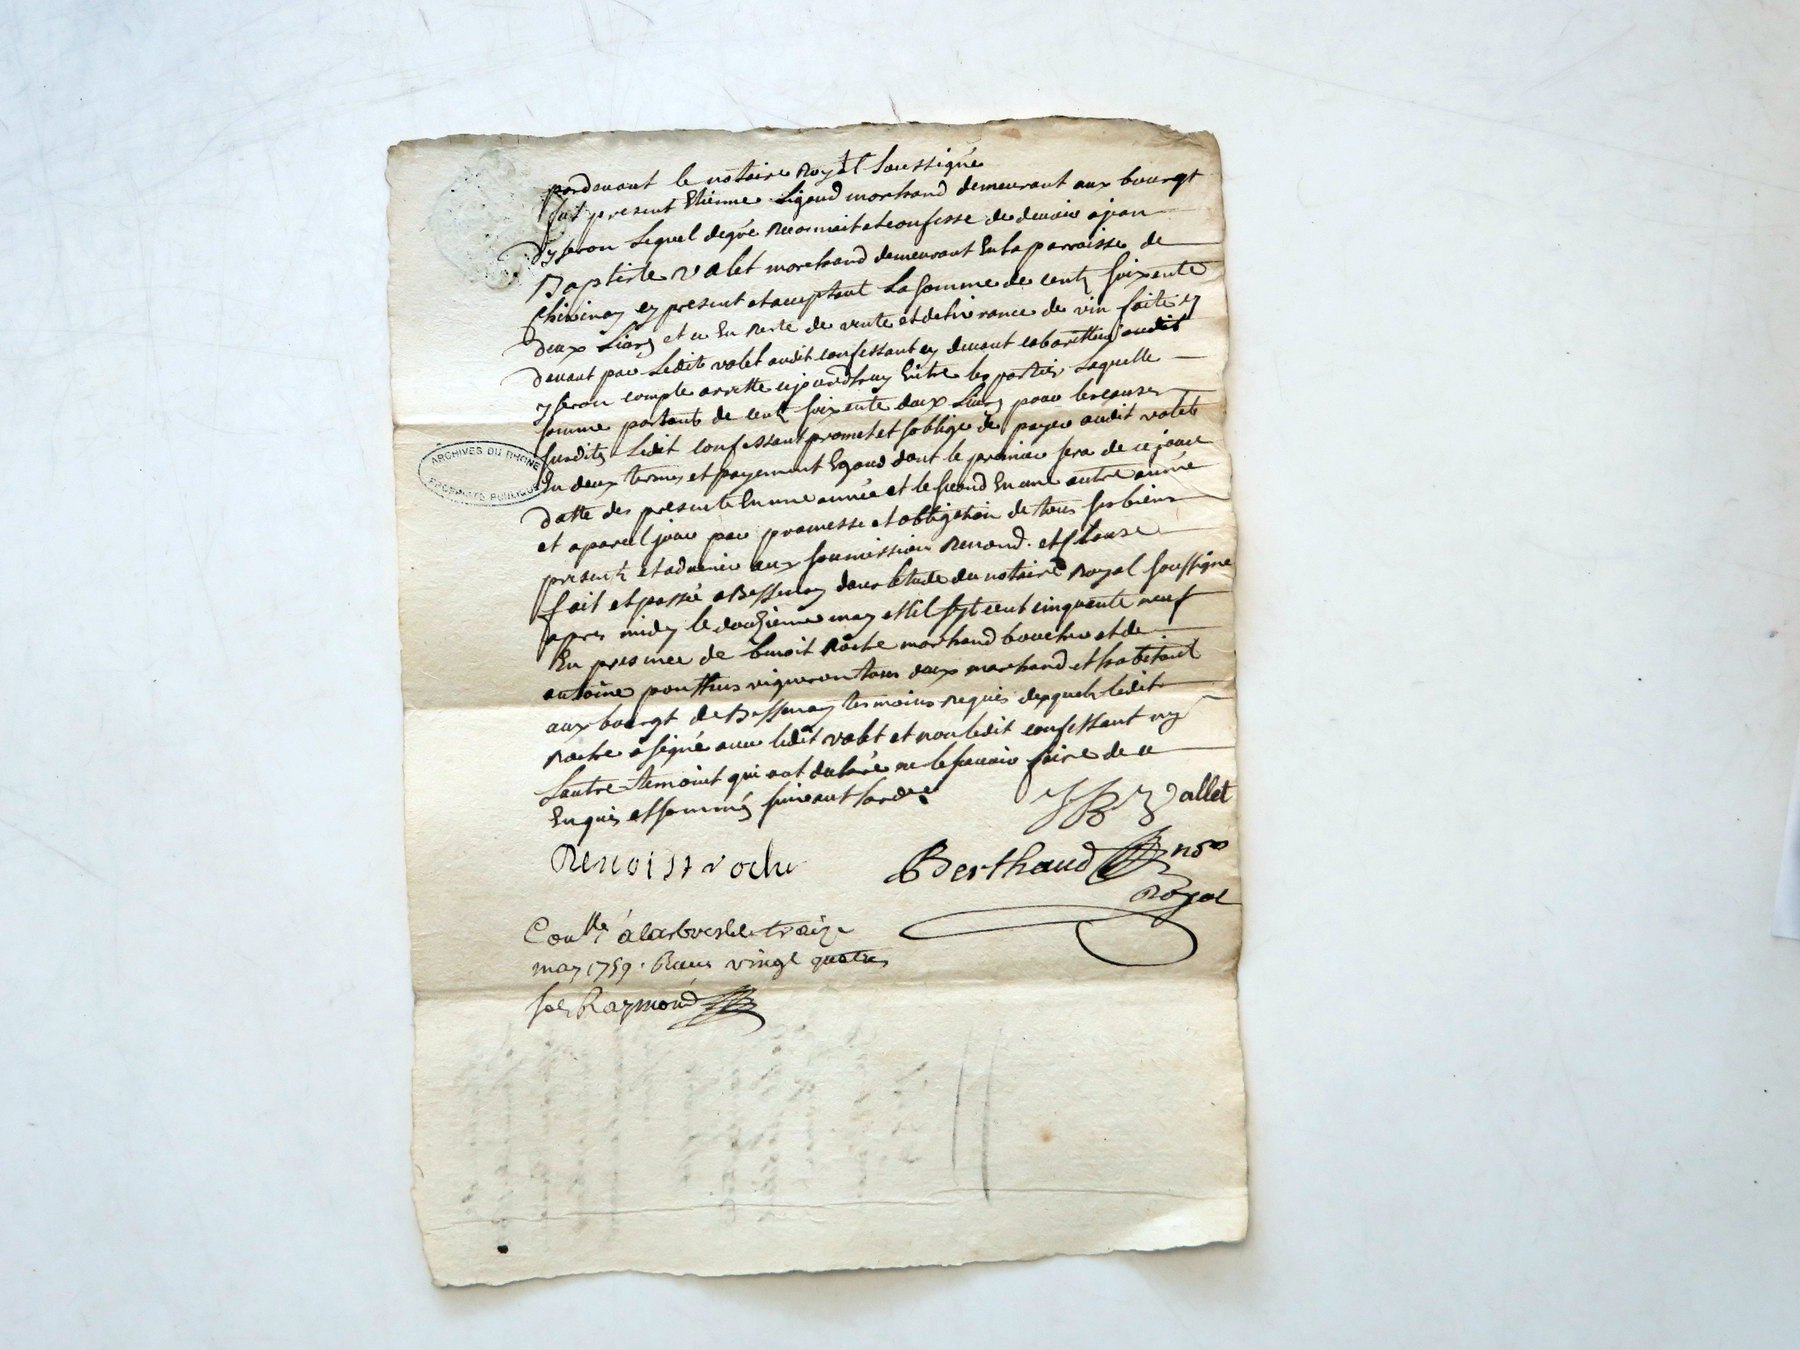 pardevant le notaire Royal soussigné
fut present Etienne Ligoud marchand demeurant aux bourgt
dyseron Lequel degré Reconnait et confesse de devoir a jean
Baptiste valet marchand demeurant En la parroisse de
chivinay cy present et acceptant La somme de cent soixente
deux Livres et ce En Reste de vente et delivrance de vin faite cy
devant par Ledit valet audit confessant cy devant cabarettier audit
yseron compte arretté aujourdhuy Entre les parties Laquelle
somme portant de cent soixente deux Livres pour les causes
susdites Ledit confessant promet et soblige de payer audit valet
En deux termes et payement Egaux dont le premier sera de ce jour
datte des presente En une année et le second En une autre année
et apareil jour par promesse et obligation de tous ses biens
presents et advenir aux soumission Renond. et clause
fait et passé a Bessenay dans letude du notaire Royal soussigné
apres midy le douzieme may mil sept cent cinquante neuf
En presence de benoit Roche marchand boucher et de
antoine ponthus vigneron tous deux marchand et habitant
aux bourgt de Bessenay temoins Requis desquels ledit
Roche a signé avec ledit valet et non ledit confessant ny
Lautre temoint qui ont declaré ne le savoir faire de ce
Enquis et sommés suivant lordre
JB Vallet
Benoist roche
Berthaud nre
Royal
Conllé à larbresle treize
may 1759. Reçu vingt quatre
sols Raymond
ARCHIVES DU RHONE